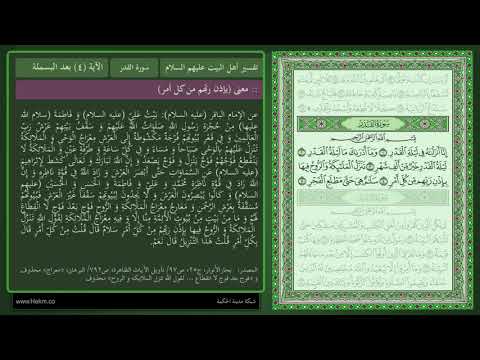 تفسير أهل البيت عليهم السلام
سورة القدر
الآية (٤) بعد البسملة
:: معنى (بإذن ربهم من كل أمر)
عن الإمام الباقر (عليه السلام): بَيْتُ عَلِيٍّ (عليه السلام) وَ فَاطِمَةَ (سلام الله
عليها) مِنْ حُجْرَةِ رَسُولِ اللَّهِ صَلَوَاتُ اللَّهِ عَلَيْهِمْ وَ سَقْفُ بَيْتِهِمْ عَرْشُ رَبِّ
الْعَالَمِينَ وَ فِي قَعْرِ بُيُوتِهِمْ فُرْجَةٌ مَكْشُوطَةٌ إِلَى الْعَرْشِ مِعْرَاجُ الْوَحْيِ وَ الْمَلَائِكَةُ
تَنْزِلُ عَلَيْهِمْ بِالْوَحْيِ صَبَاحاً وَ مَسَاءً وَ فِي كُلِّ سَاعَةٍ وَ طَرْفَةِ عَيْنٍ وَ الْمَلَائِكَةُ لَا
يَنْقَطِعُ فَوْجُهُمْ فَوْجٌ يَنْزِلُ وَ فَوْجٌ يَصْعَدُ وَ إِنَّ اللَّهَ تَبَارَكَ وَ تَعَالَى كَشَطَ لِإِبْرَاهِيمَ
(عليه السلام) عَنِ السَّمَاوَاتِ حَتَّى أَبْصَرَ الْعَرْشَ وَ زَادَ اللَّهُ فِي قُوَّةِ نَاظِرِهِ وَ إِنَّ
اللَّهَ زَادَ فِي قُوَّةِ نَاظِرَةِ مُحَمَّدٍ وَ عَلِيٍّ وَ فَاطِمَةَ وَ الْحَسَنِ وَ الْحُسَيْنِ (عليهم
السلام) وَ كَانُوا يُبْصِرُونَ الْعَرْشَ وَ لَا يَجِدُونَ لِبُيُوتِهِمْ سَقْفاً غَيْرَ الْعَرْشِ فَبُيُوتُهُمْ
مُسَقَّفَةٌ بِعَرْشِ الرَّحْمَنِ وَ مَعَارِجُ الْمَلَائِكَةِ وَ الرُّوحِ فَوْجٌ بَعْدَ فَوْجٍ لَا انْقِطَاعَ
لَهُمْ وَ مَا مِنْ بَيْتٍ مِنْ بُيُوتِ الْأَئِمَّةِ مِنَّا إِلَّا وَ فِيهِ مِعْرَاجُ الْمَلَائِكَةِ لِقَوْلِ اللَّهِ تَنَزَّلُ
الْمَلَائِكَةُ وَ الرُّوحُ فِيهَا بِإِذْنِ رَبِّهِمْ مِنْ كُلِّ أَمْرٍ سَلَامٌ قَالَ قُلْتُ مِنْ كُلِّ أَمْرٍ قَالَ
بِكُلِّ أَمْرٍ قُلْتُ هَذَا التَّنْزِيلُ قَالَ نَعَمْ.
المصدر: بحارالأنوار، ج٢٥، ص٩٧/ تأويل الآيات الظاهرة، ص٧٩٢/ البرهان؛ «معراج» محذوف
و «فوج بعد فوج لا انقطاع ... لقول الله تنزل الملائكة و الروح» محذوف
www.Hekm.co
شبكة مدينة الحكمة
سورة القدر
بسم الله الرحمن الرحيم
إِنَّا أَنزَلْنَاهُ فِي لَيْلَةِ الْقَدْرِ ۝ وَمَا أَدْرَاكَ مَا لَيْلَةُ
الْقَدْرِ ۝ لَيْلَةُ الْقَدْرِ خَيْرٌ مِّنْ أَلْفِ شَهْرٍ ۝ تَنَزَّلُ الْمَلَائِكَةُ وَالرُّوحُ فِيهَا
بِإِذْنِ رَبِّهِم مِّن كُلِّ أَمْرٍ ۝ سَلَامٌ هِيَ حَتَّىٰ مَطْلَعِ الْفَجْرِ ۝